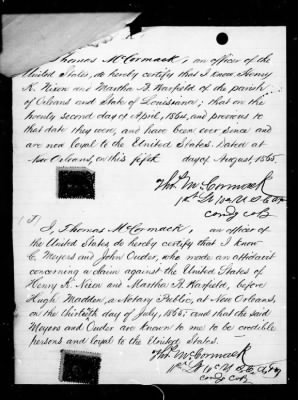 I, Thomas McCormack, an officer of the
United States, do hereby certify that I know Henry
K. Nixon and Martha B. Warfield of the parish
of Orleans and State of Louisiana; that on the
twenty second day of April, 1864, and previous to
that date they were, and have been ever since and
are now loyal to the United States. Dated at
New Orleans, on this fifth day of August, 1865.
Thos. McCormack
1st Lt
I, Thomas McCormack, an officer of
the United States, do hereby certify that I know
C. Meyers and John Ouder, who made an affidavit
concerning a claim against the United States of
Henry K. Nixon and Martha B. Warfield, before
Hugh Madden, a Notary Public, at New Orleans,
on the thirtieth day of July, 1865; and that the said
Meyers and Ouder are known to me to be credible
persons and loyal to the United States.
Thos. McCormack
1st Lt